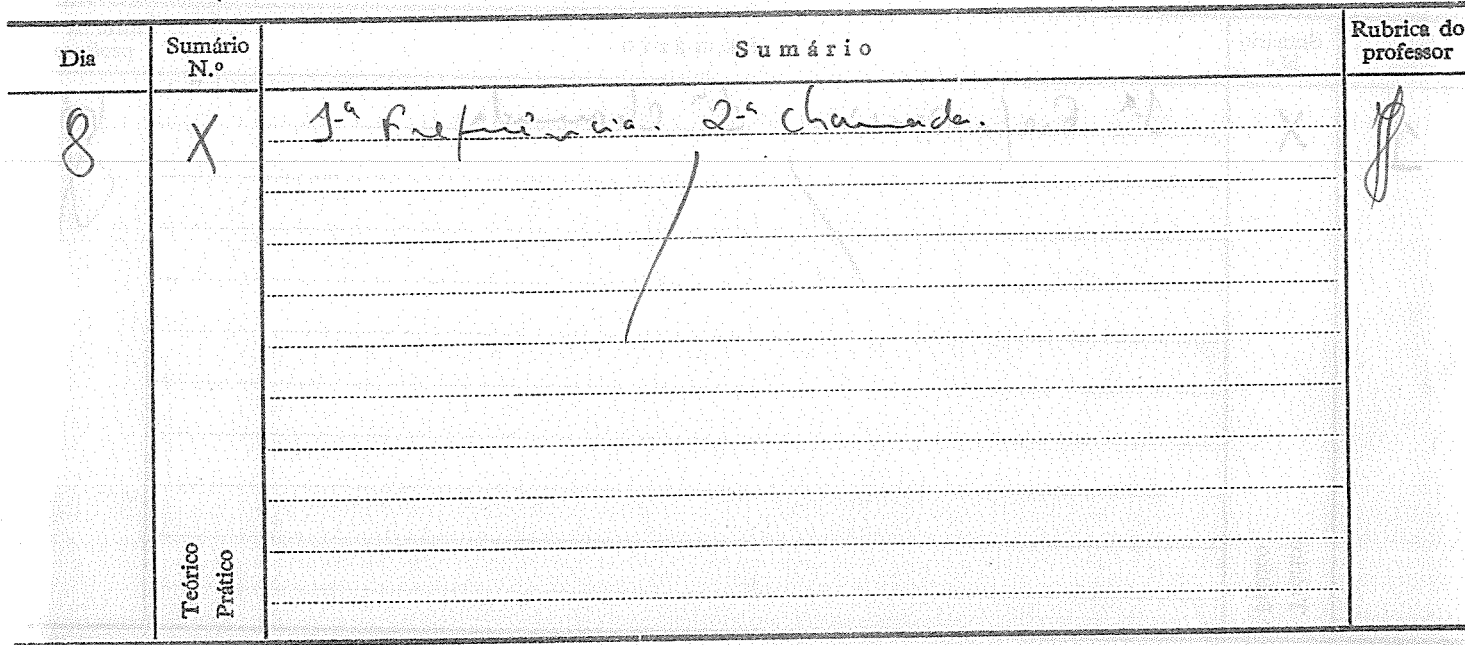 Dia
Sumário N.º
Sumário
Rubrica do professor
8
X
1.ª Frequência. 2.ª chamada.
Teórico
Prático